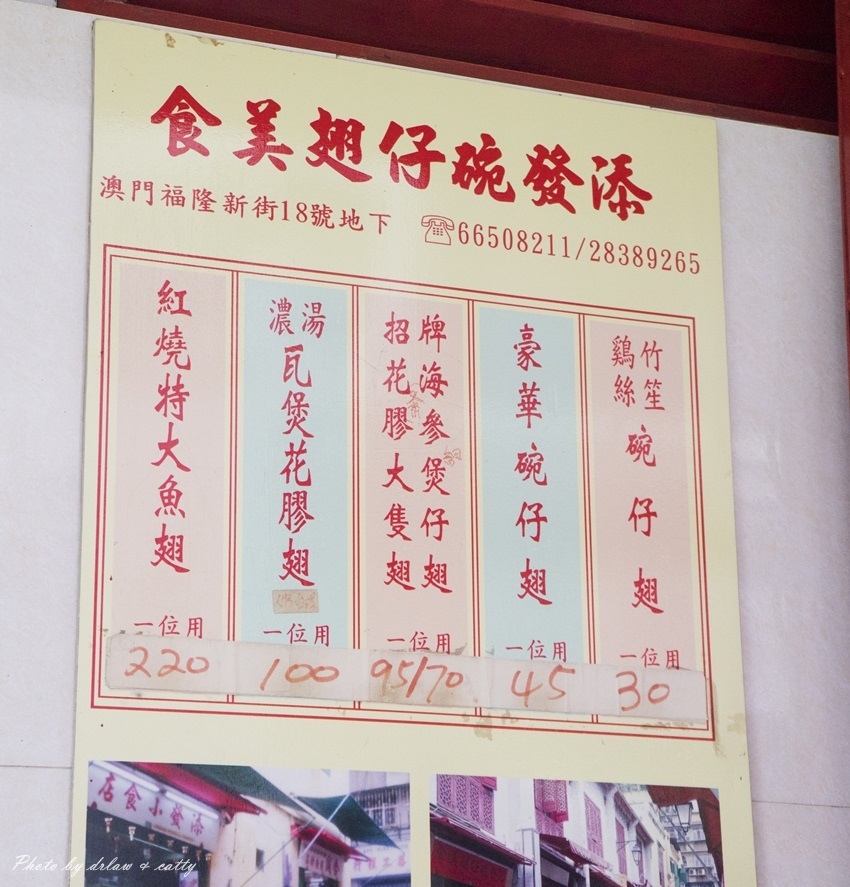 添發碗仔翅美食
澳門福隆新街18號地下
66508211/28389265
竹笙
鷄絲
碗仔翅
一位用
30
豪華碗仔翅
一位用
45
招牌
海參煲仔翅
花膠大隻翅
一位用
95/70
濃湯
瓦煲花膠翅
一位用
100
紅燒特大魚翅
一位用
220
添發小食店
Photo by drlaw & catty